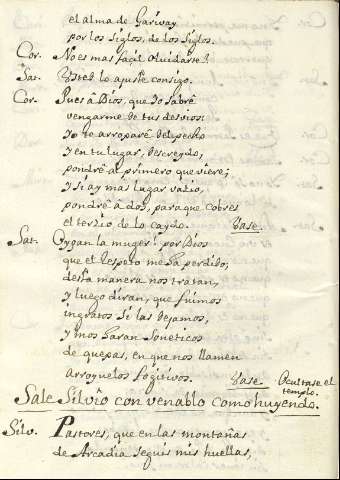 el alma de Gariuay
por los siglos, de los siglos.
Cor. No es mas facil oluidarte?
Sat. Vsted lo ajuste consigo.
Cor. Pues â Dios, que Yo sabrê
vengarme de tus desuios:
Yo te arroparê del pecho
y en tu lugar, descreydo,
pondrê al primero que uiere;
y si ay mas lugar vazio,
pondrê a dos, para que cobres
el terzio, de lo caydo. Vase.
Sat. Oygan la muger! por Dios
que el respeto me ha perdido;
desta manera nos tratan,
y luego diran, que fuimos
ingratos si las dejamos,
y nos haran soneticos
de quejas, en que nos llamen
arroyuelos fugitivos. Vase. Ocultase el
templo.
Sale Siluio con venablo como huyendo.
Silv. Pastores, que en las montañas
de Arcadia seguis mis huellas,